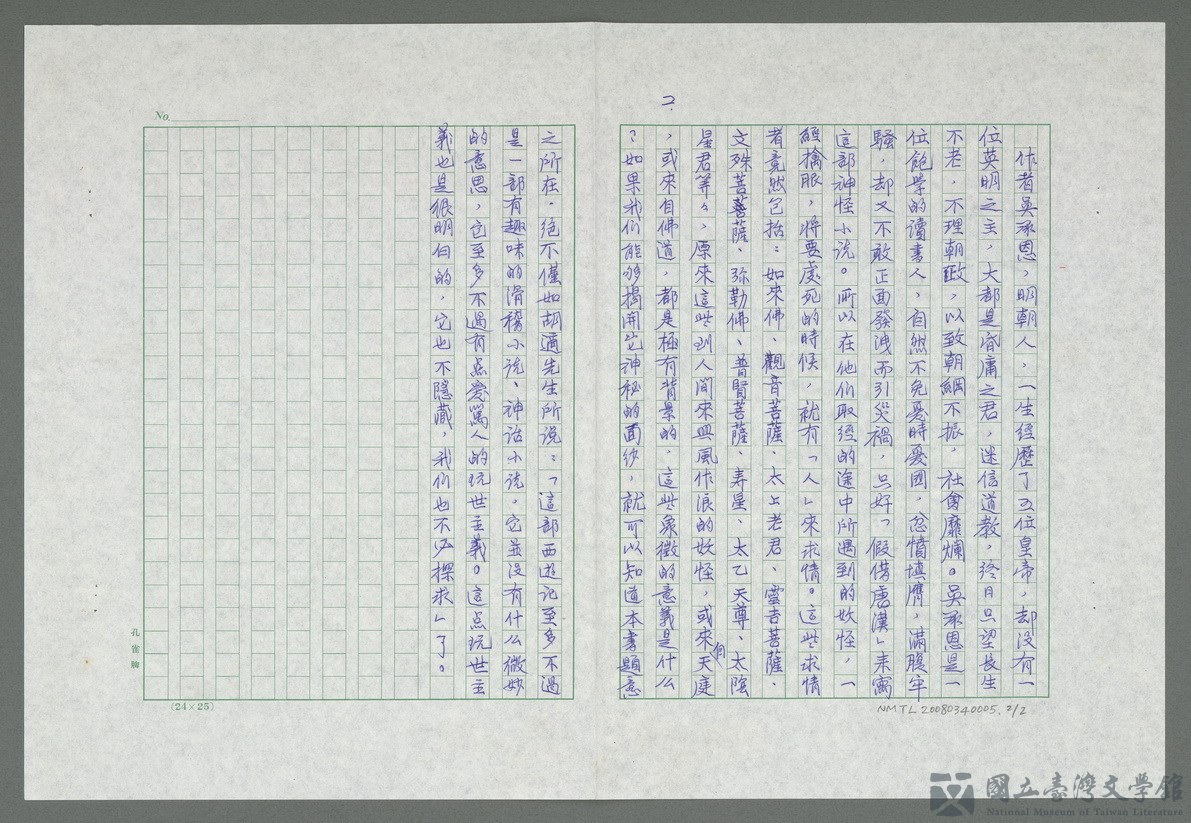 No.
2.
作者吳承恩，明朝人，一生經歷了五位皇帝，却没有一
位英明之主，大都是昏庸之君，迷信道教，終日只望長生
不老，不理朝政，以致朝綱不振，社會靡爛。吳承恩是一
位飽學的讀書人，自然不免憂時憂國，忿憤填膺，滿腹牢
騷，却又不敢正面發洩而引災禍，只好「假借唐漢」来寫
這部神怪小説。所以在他们取經的途中所遇到的妖怪，一
經擒服，將要處死的時候，就有「人」來求情。這些求情
者竟然包括：如來佛、觀音菩薩、太上老君、靈吉菩薩、
文殊菩薩、弥勒佛、普賢菩薩、寿星、太乙天尊、太陰
星君等々，原來這些到人间來興風作浪的妖怪，或來自天庭
，或來自佛道，都是極有背景的，這些象徵的意義是什么
？如果我们能够揭開它神秘的面纱，就可以知道本書題意
之所在．絕不僅如胡適先生所説：「這部西遊记至多不過
是一部有趣味的滑稽小说、神话小说，它並没有什么微妙
的意思，它至多不過有点爱罵人的玩世主義。這点玩世主
義也是很明白的，它也不隱藏，我们也不必探求」了。
孔雀牌
(24×25)
NMTL20080340005. 2/2
國立臺灣文學館
National Museum of Taiwan Literature